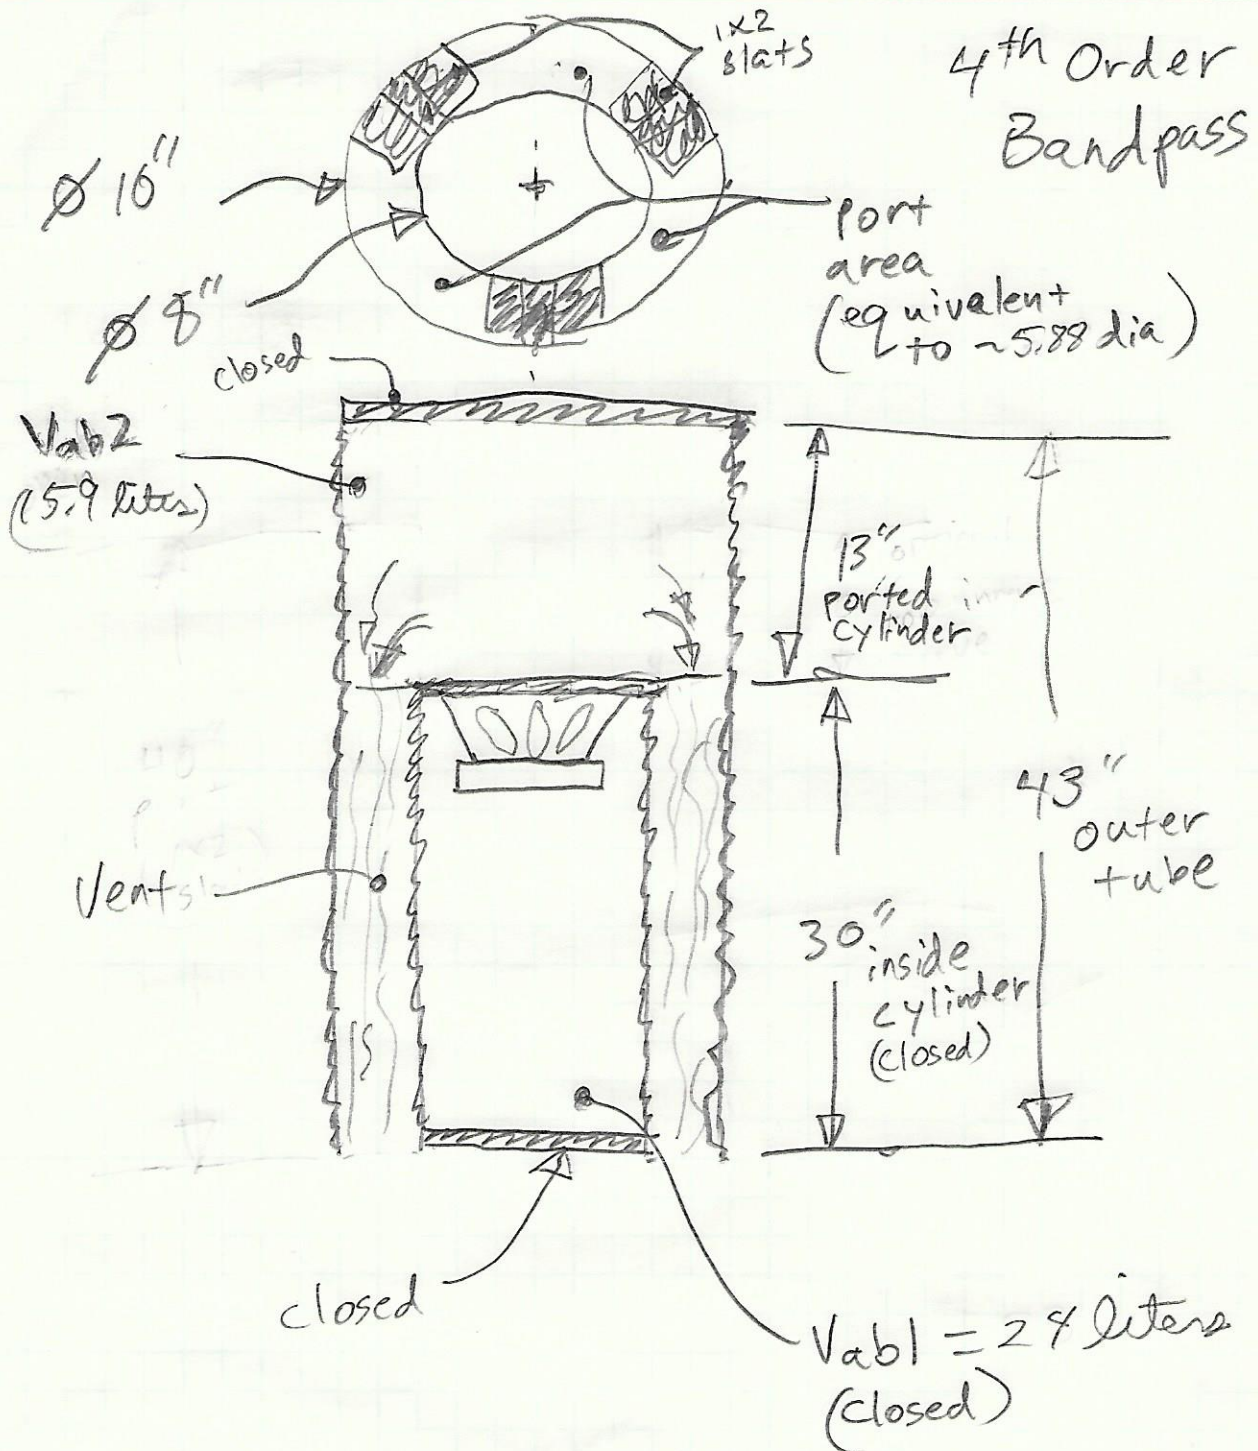 1x2
slats
4th Order
Bandpass
Ø 10"
Ø 8"
port
area
(equivalent
to ~5.88 dia)
closed
Vab2
(15.9 liters)
13"
ported
cylinder
43"
outer
tube
Vent
30"
inside
cylinder
(closed)
closed
Vab1 = 24 liters
(closed)